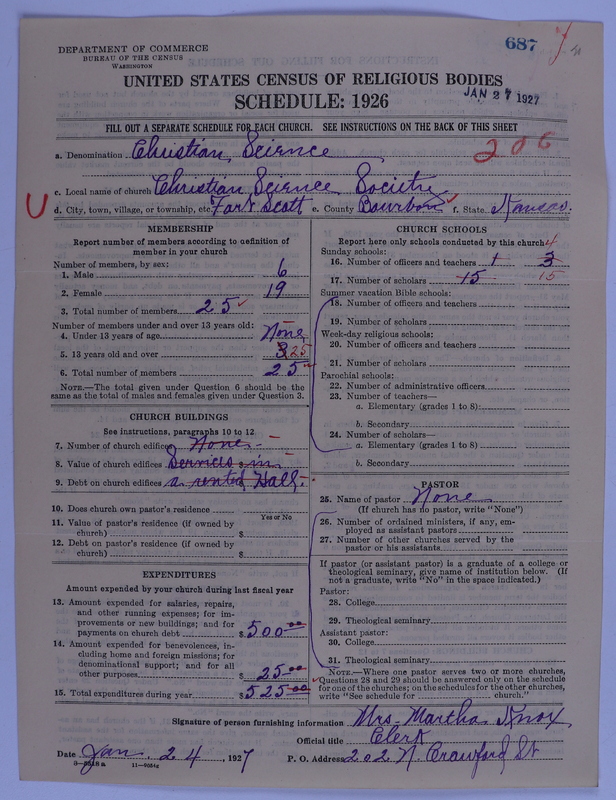 DEPARTMENT OF COMMERCE
BUREAU OF THE CENSUS
WASHINGTON
687
UNITED STATES CENSUS OF RELIGIOUS BODIES
SCHEDULE: 1926
JAN 27 1927
FILL OUT A SEPARATE SCHEDULE FOR EACH CHURCH. SEE INSTRUCTIONS ON THE BACK OF THIS SHEET
a. Denomination Christian Science
206
c. Local name of church Christian Science Society
d. City, town, village, or township, etc. Fort Scott e. County Bourbon f. State Kansas.
MEMBERSHIP
Report number of members according to definition of
member in your church
Number of members by sex:
1. Male 6
2. Female 19
3. Total number of members 25
Number of members under and over 13 years old:
4. Under 13 years of age None
5. 13 years old and over 25
6. Total number of members 25
NOTE.—The total given under Question 6 should be the
same as the total of males and females given under Question 3.
CHURCH BUILDINGS
See instructions, paragraphs 10 to 12
7. Number of church edifices None
8. Value of church edifices Services in
9. Debt on church edifices a rented Hall.
10. Does church own pastor's residence
Yes or No
11. Value of pastor's residence (if owned by
church) $
12. Debt on pastor's residence (if owned by
church) $
EXPENDITURES
Amount expended by your church during last fiscal year
13. Amount expended for salaries, repairs,
and other running expenses; for im-
provements or new buildings; and for
payments on church debt $500.00
14. Amount expended for benevolences, in-
cluding home and foreign missions; for
denominational support; and for all
other purposes $25.00
15. Total expenditures during year $525.00
CHURCH SCHOOLS
Report here only schools conducted by this church
Sunday schools:
4
16. Number of officers and teachers 1 3
17. Number of scholars 15 15
Summer vacation Bible schools:
18. Number of officers and teachers
19. Number of scholars
Week-day religious schools:
20. Number of officers and teachers
21. Number of scholars
Parochial schools:
22. Number of administrative officers
23. Number of teachers—
a. Elementary (grades 1 to 8)
b. Secondary
24. Number of scholars—
a. Elementary (grades 1 to 8)
b. Secondary
PASTOR
25. Name of pastor None
(If church has no pastor, write "None")
26. Number of ordained ministers, if any, em-
ployed as assistant pastors
27. Number of other churches served by the
pastor or his assistants
If pastor (or assistant pastor) is a graduate of a college or
theological seminary, give name of institution below. (If
not a graduate, write "No" in the space indicated.)
Pastor:
28. College
29. Theological seminary
Assistant pastor:
30. College
31. Theological seminary
NOTE.—Where one pastor serves two or more churches,
Questions 28 and 29 should be answered only on the schedule
for one of the churches; on the schedules for the other churches,
write "See schedule for church."
Signature of person furnishing information Mrs. Martha Knox
Official title Clerk
Date Jan. 24, 1927 P. O. Address 202 N. Crawford St
11—9034